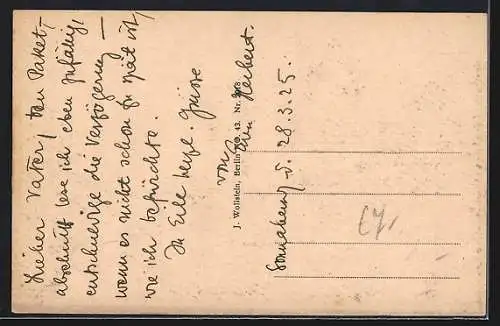 Lieber Vater, den Paket-
abschnitt lese ich eben zufällig,
entschuldige die Verzögerung —
wenn es nicht schon zu spät ist,
wie ich befürchte.
In Eile herzl. Grüsse
von
Herbert.
J. Wollstein, Berlin 43. Nr.
Sonnabend, d. 28.3.25.